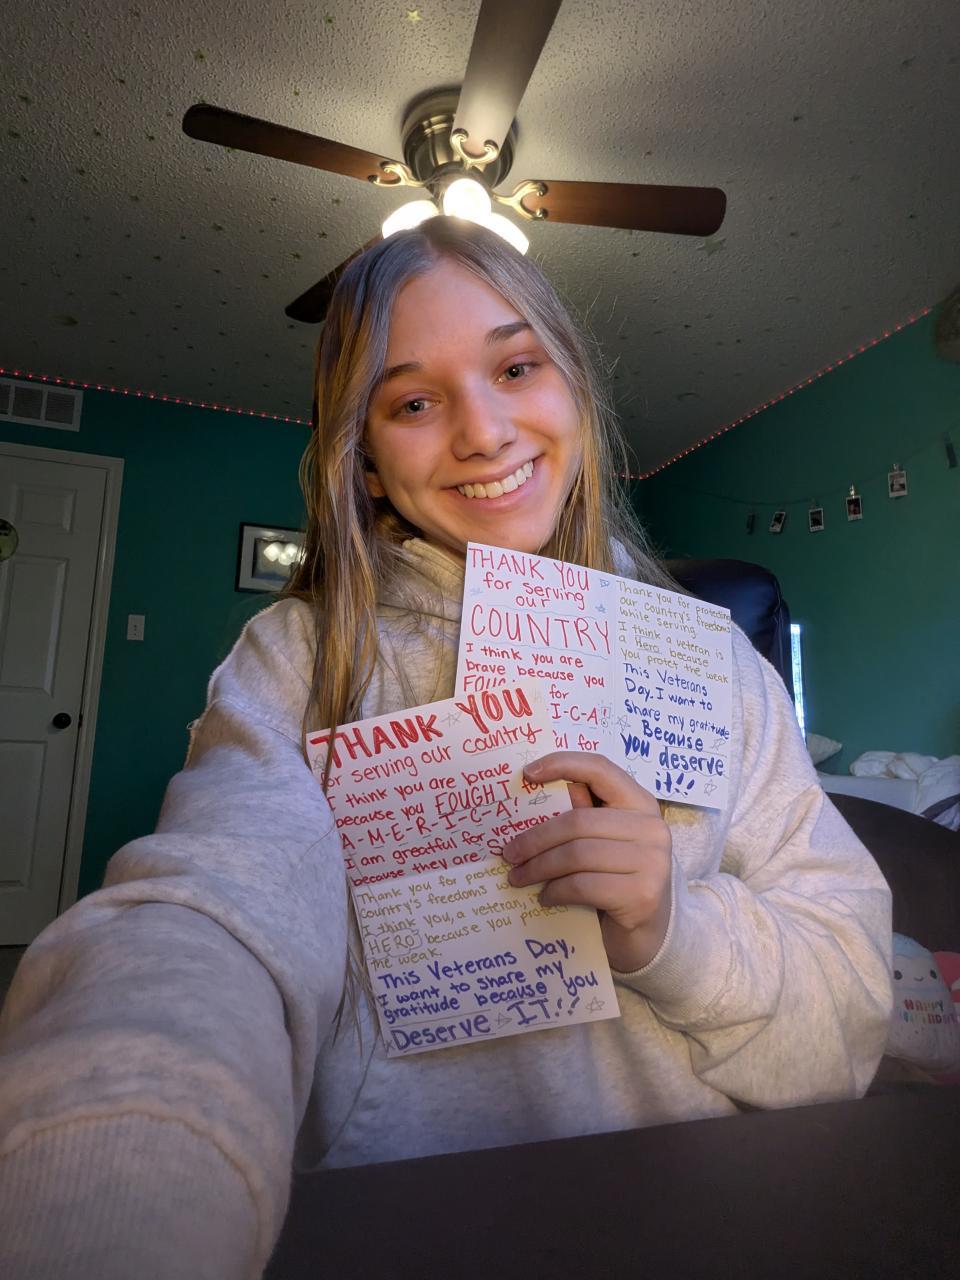 THANK YOU
for serving
our
COUNTRY
I think you are
brave because you
for
I-C-A!
ful for
Thank you for protecting
our country's freedoms
while serving.
I think a veteran is
a Hero because
you protect the weak
This Veterans
Day, I want to
share my gratitude
Because
you deserve
it!!
THANK YOU
for serving our country
I think you are brave
because you FOUGHT for
A-M-E-R-I-C-A!
I am greatful for veterans
because they are
Thank you for
country's freedoms
I think you, a veteran, is
HERO because you protect
the weak.
This Veterans Day,
I want to share my
gratitude because you
Deserve IT!!
HAPPY